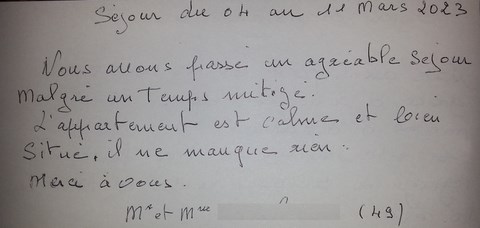 Séjour du 04 au 11 Mars 2023
Nous avons passé un agréable séjour
Malgré un Temps mitigé.
L'appartement est calme et bien
Situé, il ne manque rien.
Merci à vous.
Mr et Mme (49)